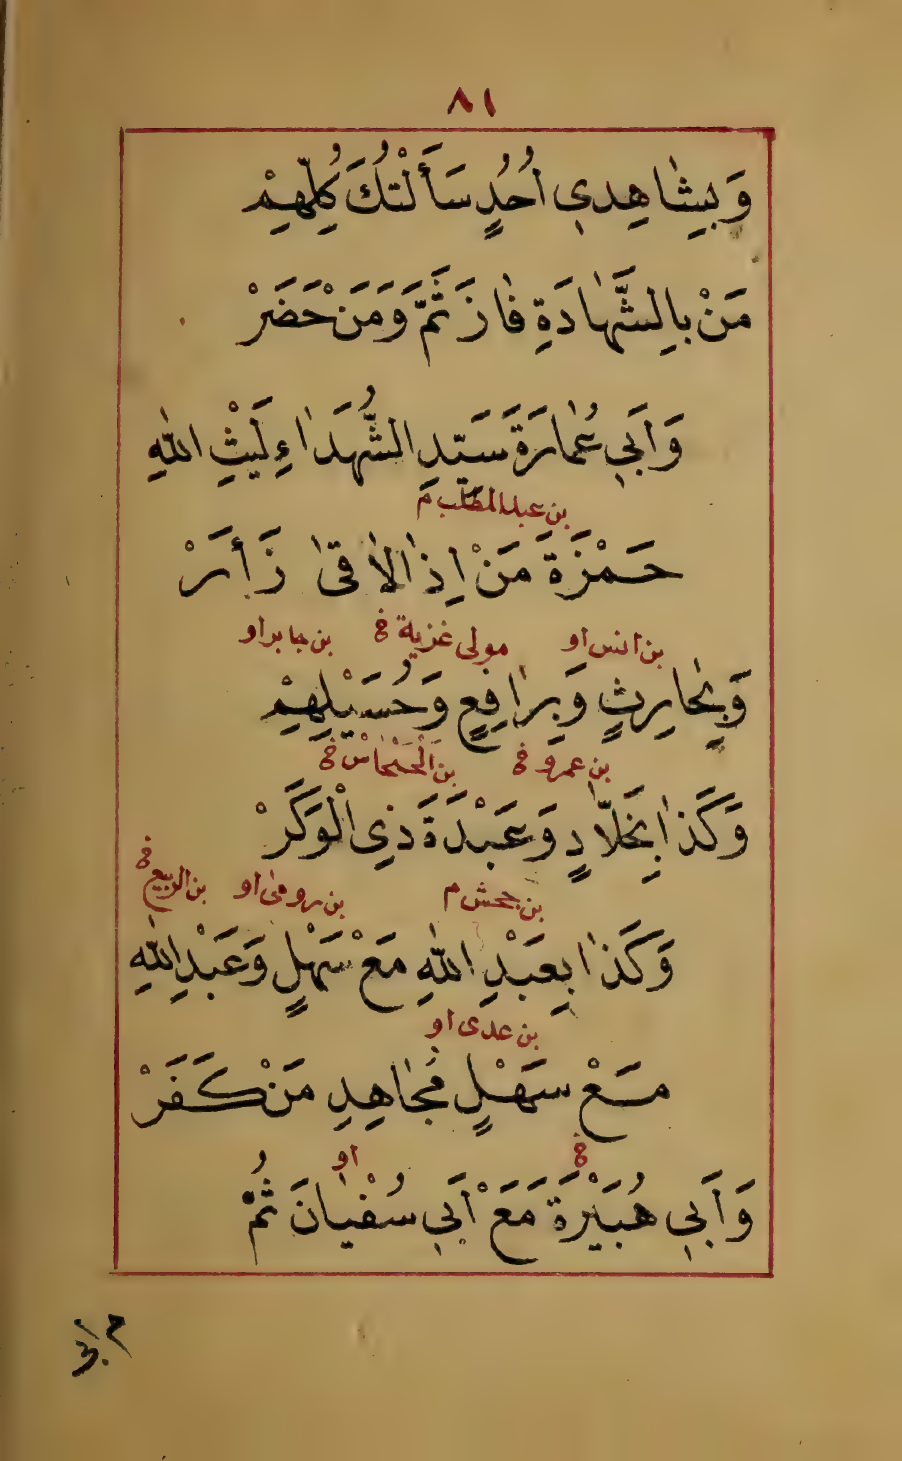 ٨١
وَبِشَاهِدِي اُحُدٍ سَأَلْتُكَ كُلِّهِمْ
مَنْ بِالشَّهَادَةِ فَازَ ثَمَّ وَمَنْ حَضَرْ
وَاَبِي عُمَارَةَ سَيِّدِ الشُّهَدَاءِ لَيْثِ اللهِ
بن عبد المطلب م
حَمْزَةَ مَنْ اِذَا لَاقَى زَأَرْ
بن انس او مولى غزية خ بن جابر او
وَبِحَارِثٍ وَبِرَافِعٍ وَحُسَيْلِهِمْ
بن عمرو خ بن الْحَسْحَاسْ خ
وَكَذَا بِخَلَّادٍ وَعَبْدَةَ ذِي الْوَكَرْ
بن جحش م بن رومى او بن الربيع خ
وَكَذَا بِعَبْدِ اللهِ مَعْ سَهْلٍ وَعَبْدِ اللهِ
بن عدى او
مَعْ سَهْلٍ مُجَاهِدِ مَنْ كَفَرْ
خ او
وَاَبِي هُبَيْرَةَ مَعَ ابِي سُفْيَانَ ثُمَّ